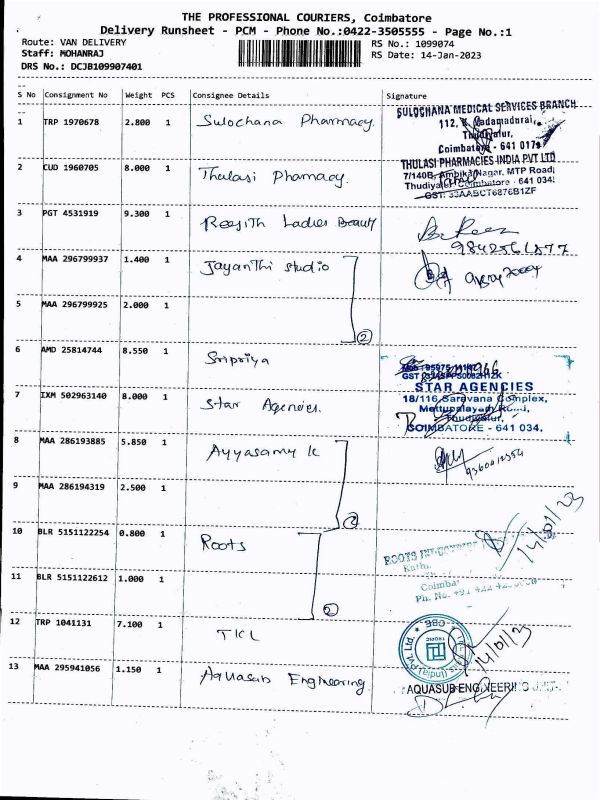 THE PROFESSIONAL COURIERS, Coimbatore
Delivery Runsheet - PCM - Phone No.:0422-3505555 - Page No.:1
Route: VAN DELIVERY
RS No.: 1099074
Staff: MOHANRAJ
RS Date: 14-Jan-2023
DRS No.: DCJB109907401
S No Consignment No Weight PCS Consignee Details Signature
1 TRP 1970678 2.800 1 Sulochana Pharmacy
SULOCHANA MEDICAL SERVICES BRANCH
112,
Thudiyalur,
Coimbatore - 641 017
2 CUD 1960705 8.000 1 Thulasi Pharmacy.
THULASI PHARMACIES INDIA PVT LTD
7/140B, Ambika Nagar, MTP Road
Thudiyalur Coimbatore - 641 034.
GST: 33AABCT6876B1ZF
3 PGT 4531919 9.300 1 Reejith Ladies Beauty
4 MAA 296799937 1.400 1 Jayanthi Studio
5 MAA 296799925 2.000 1
2
6 AMD 25814744 8.550 1 Sripriya
7 IXM 502963140 8.000 1 Star Agencies.
STAR AGENCIES
18/116, Saravana Complex,
Mettupalayam Road,
Thudiyalur,
COIMBATORE - 641 034.
8 MAA 286193885 5.850 1 Ayyasamy K
9 MAA 286194319 2.500 1
2
10 BLR 5151122254 0.800 1 Roots
14/01/23
11 BLR 5151122612 1.000 1
2
12 TRP 1041131 7.100 1 TCL
14/01/23
13 MAA 295941056 1.150 1 Aquasub Engineering
AQUASUB ENGINEERING